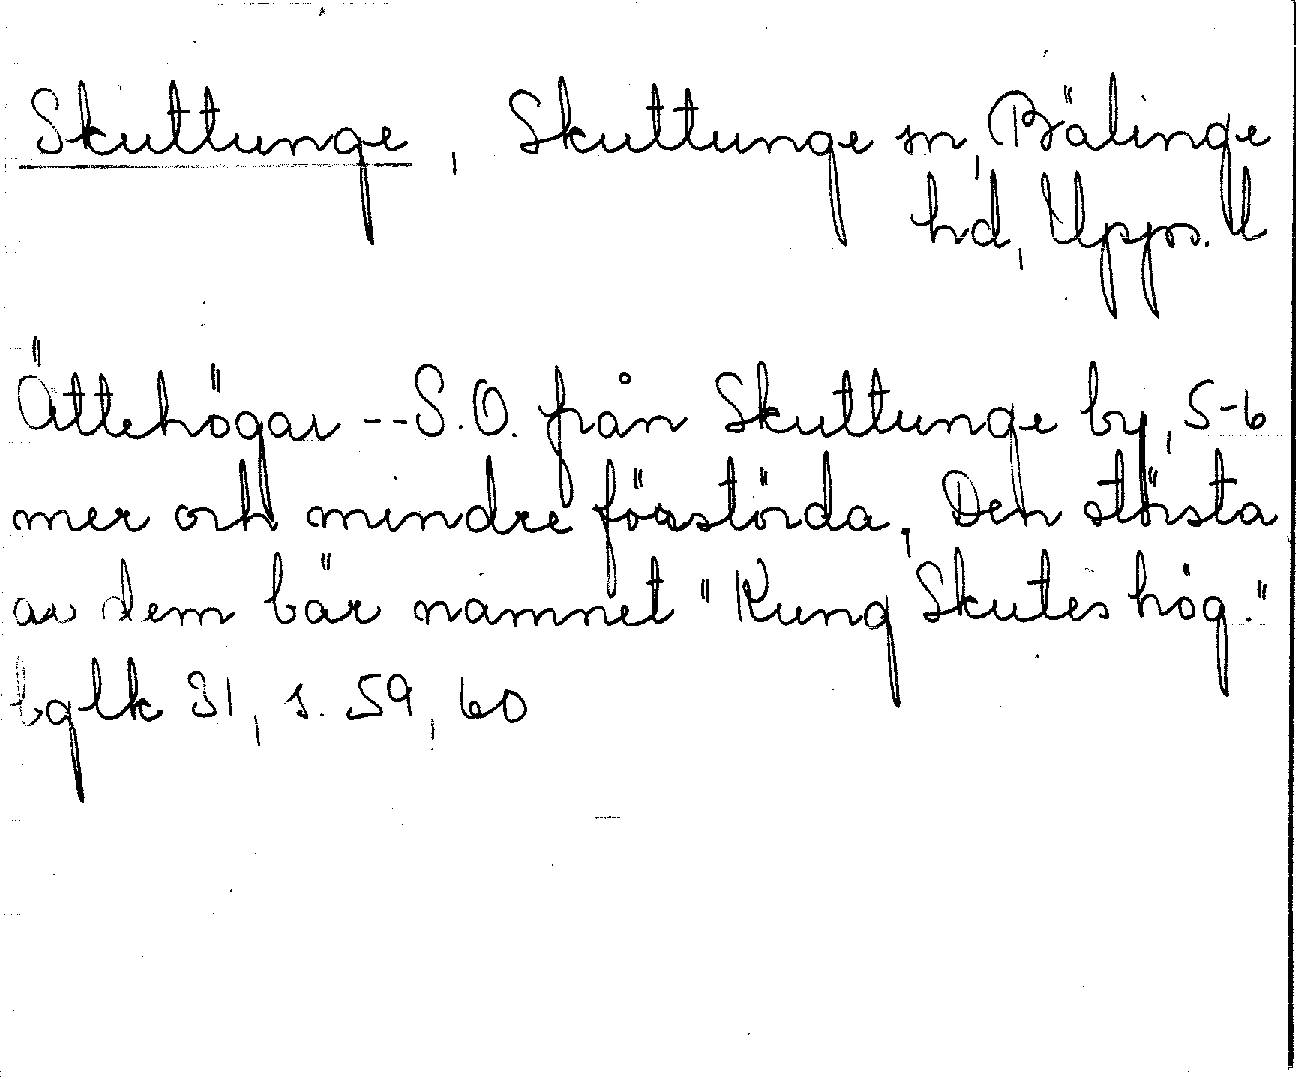 Skuttunge, Skuttunge sn, Bälinge
hd, Upps. l
Ättehögar -- S.O. från Skuttunge by, 5-6
mer och mindre förstörda. Den största
av dem bär namnet "Kung Skutes hög."
bglk 31, s. 59, 60